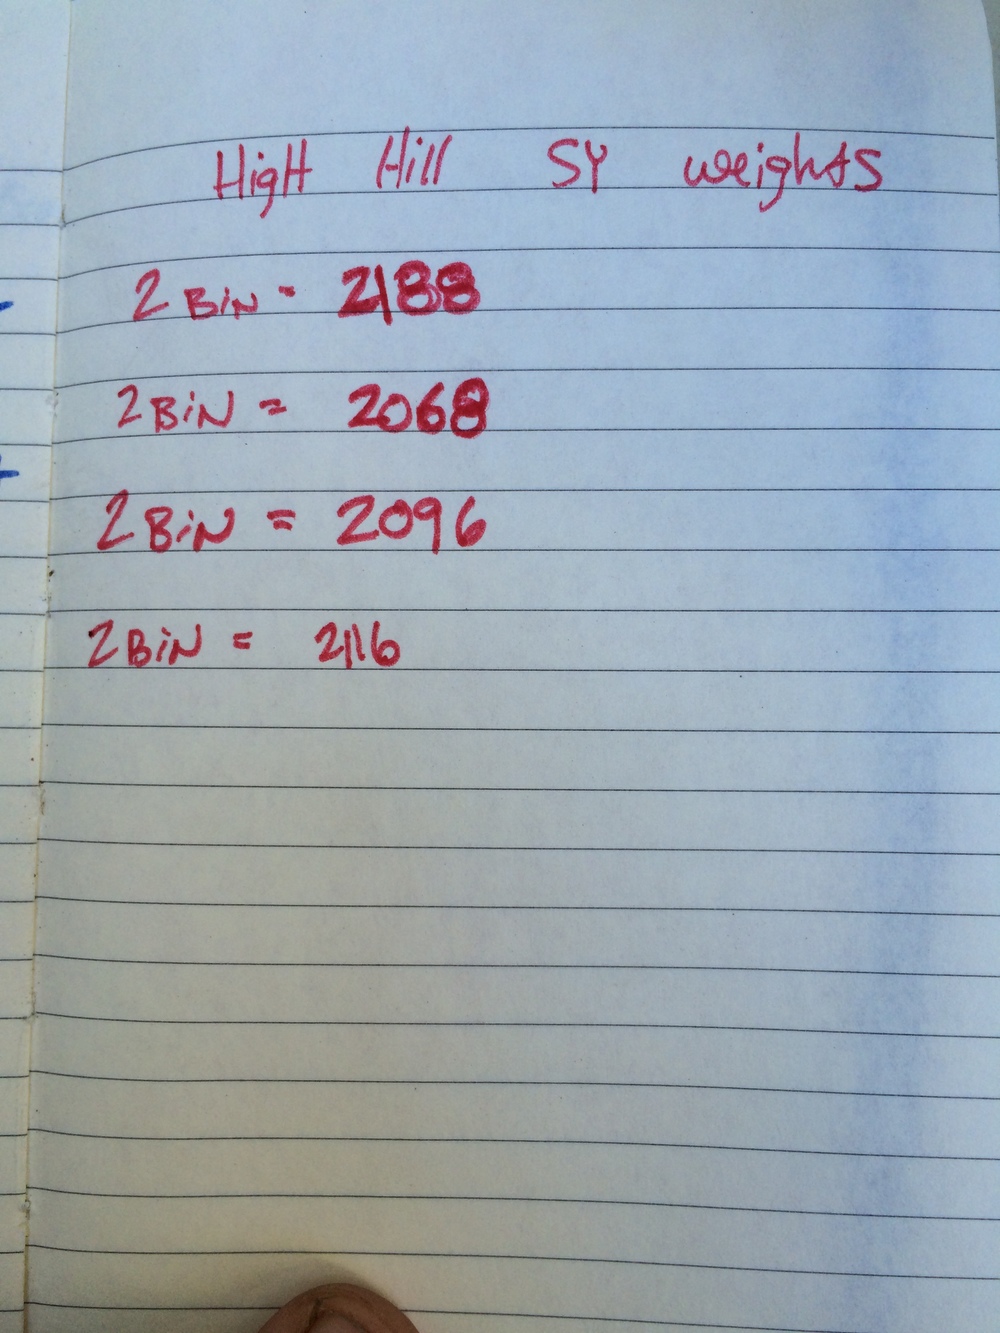 HigH Hill SY weights
2 BiN - 2188
2 BiN = 2068
2 BiN = 2096
2 BiN = 2116